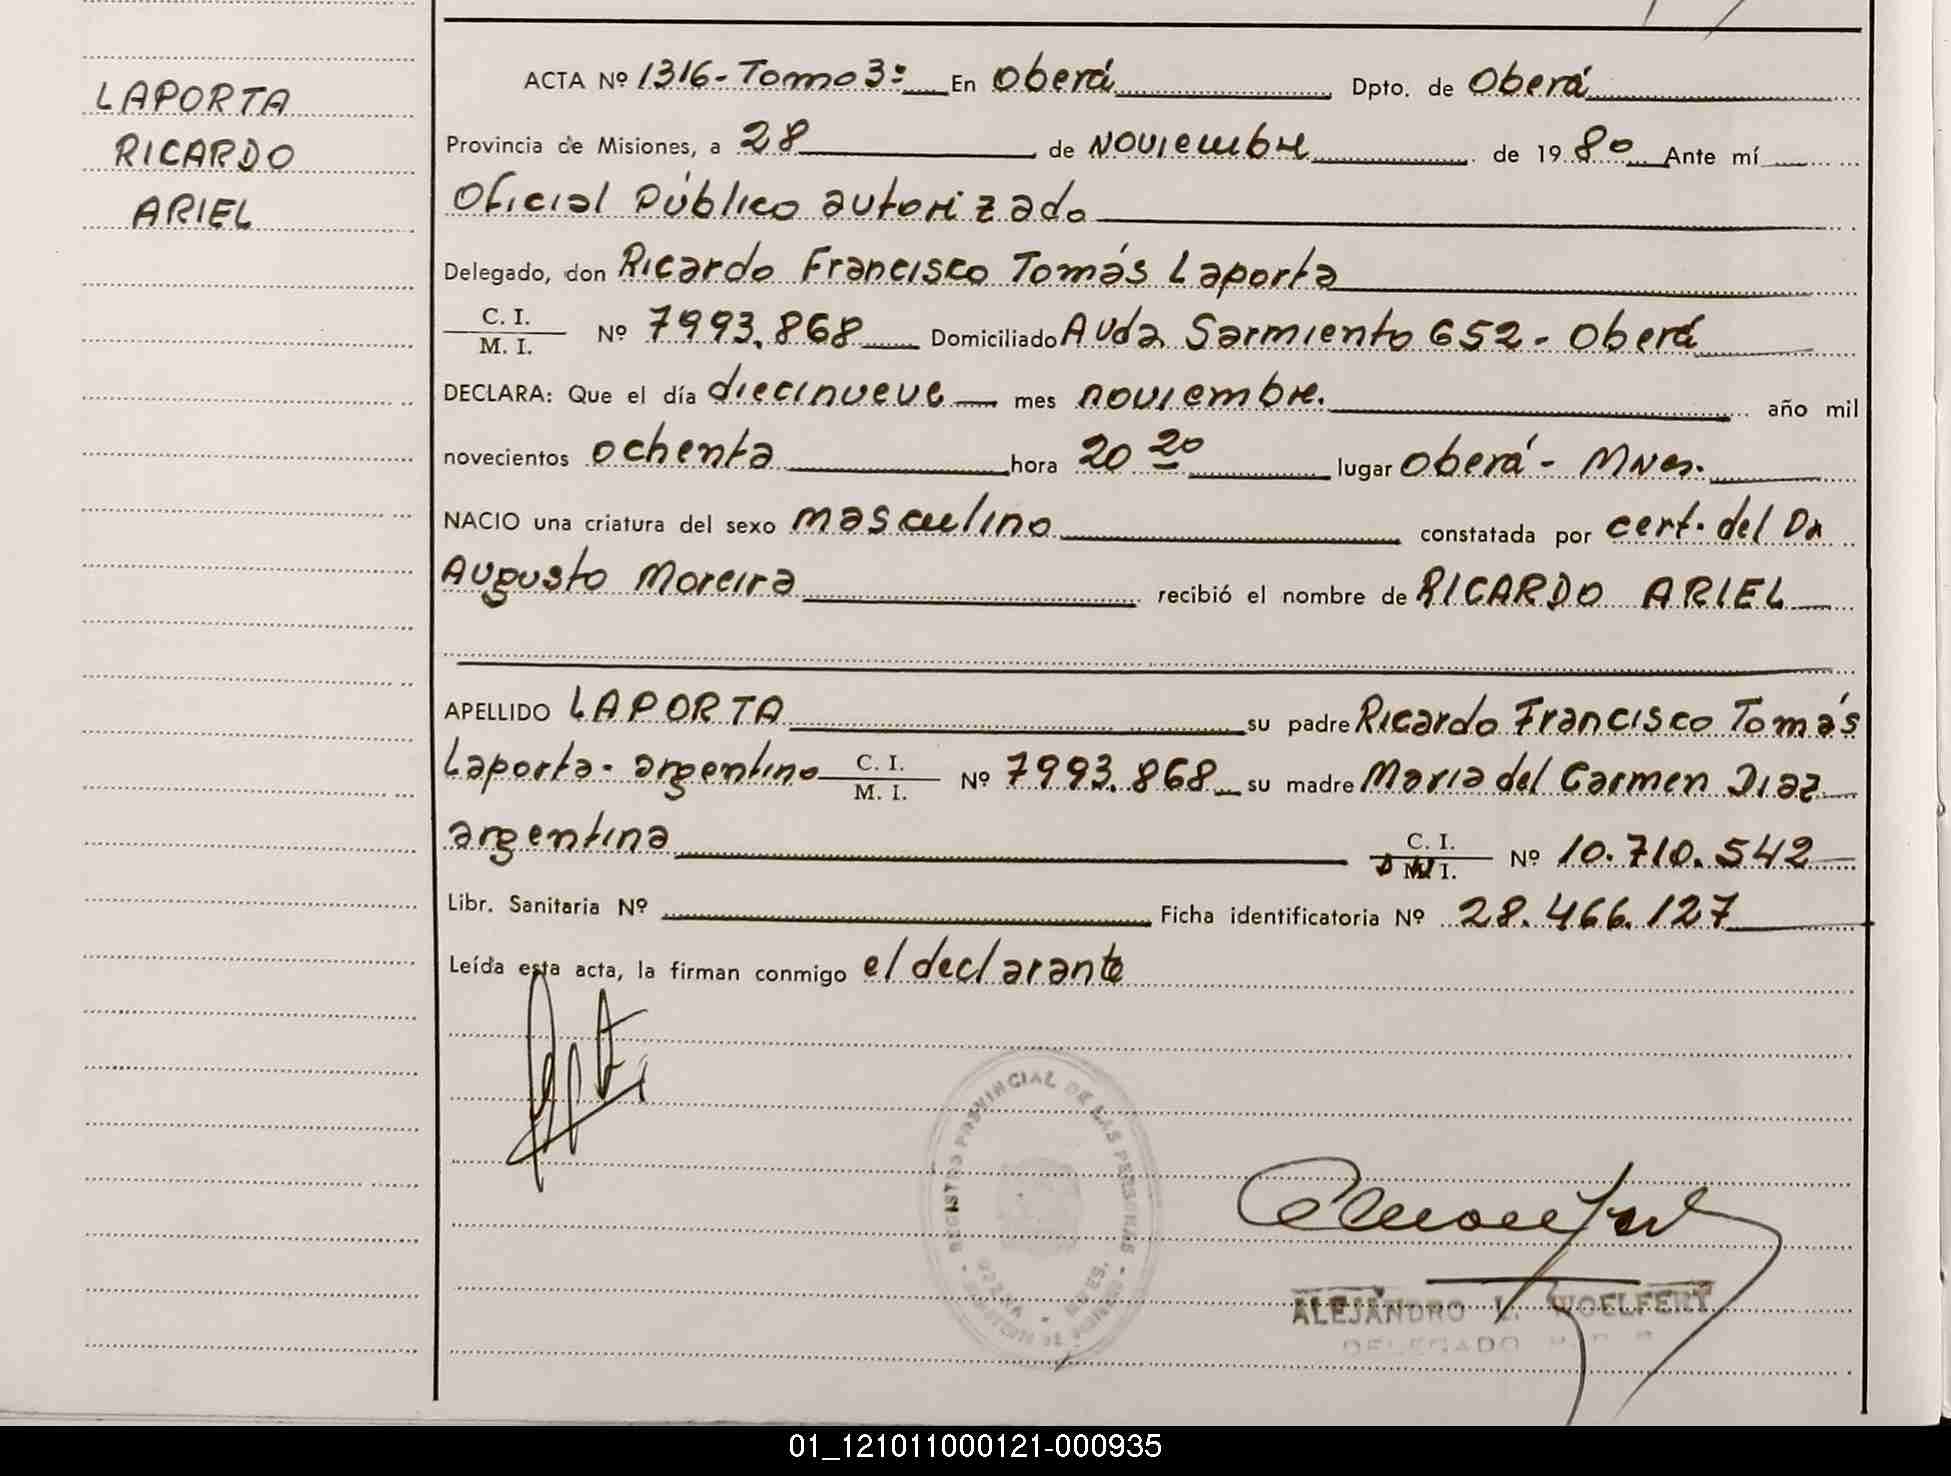 LAPORTA
RICARDO
ARIEL
ACTA Nº 1316-Tomo 3º En Oberá Dpto. de Oberá
Provincia de Misiones, a 28 de noviembre de 1980 Ante mí
Oficial Público autorizado
Delegado, don Ricardo Francisco Tomás Laporta
C. I.
M. I. Nº 7993.868 Domiciliado Avda Sarmiento 652 - Oberá
DECLARA: Que el día diecinueve mes noviembre. año mil
novecientos ochenta hora 20 20 lugar Oberá - Mnes.
NACIO una criatura del sexo masculino constatada por cert. del Dr
Augusto Moreira recibió el nombre de RICARDO ARIEL
APELLIDO LAPORTA su padre Ricardo Francisco Tomás
Laporta - argentino C. I. M. I. Nº 7993.868 su madre Maria del Carmen Diaz
argentina C. I. M. I. Nº 10.710.542
Libr. Sanitaria Nº Ficha identificatoria Nº 28.466.127
Leída esta acta, la firman conmigo el declarante
REGISTRO PROVINCIAL DE LAS PERSONAS
ALEJANDRO L. WOELFERT
DELEGADO
01_121011000121-000935